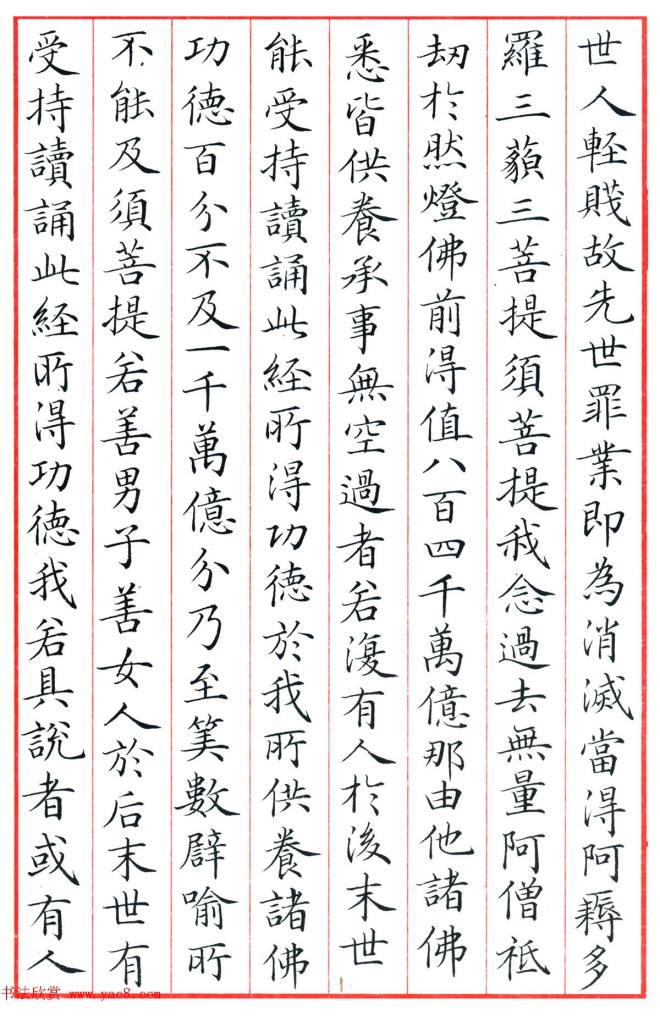 世人輕賤故先世罪業即為消滅當得阿耨多
羅三藐三菩提須菩提我念過去無量阿僧祇
劫於然燈佛前得值八百四千萬億那由他諸佛
悉皆供養承事無空過者若復有人於後末世
能受持讀誦此經所得功德於我所供養諸佛
功德百分不及一千萬億分乃至筭數譬喻所
不能及須菩提若善男子善女人於后末世有
受持讀誦此經所得功德我若具説者或有人
书法欣赏 www.yac8.com